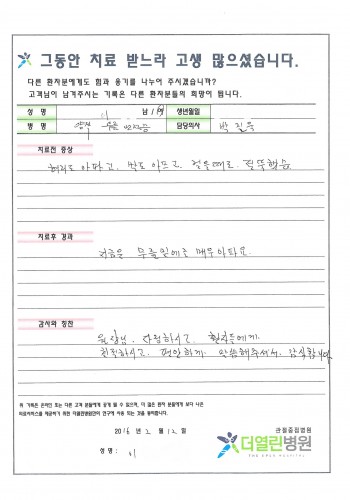 그동안 치료 받느라 고생 많으셨습니다.
다른 환자분에게도 힘과 용기를 나누어 주시겠습니까?
고객님이 남겨주시는 기록은 다른 환자분들의 희망이 됩니다.
성 명 이 남 / 여 생년월일
병 명 양측 무릎 담당의사 박진욱
치료전 증상
허리도 아프고, 발도 아프고, 걸을때도 절뚝했음
치료후 결과
지금은 무릎 매우
감사와 칭찬
원장님, 다정하시고, 환자들에게
친절하시고, 편안하게 말씀해주셔서, 감사합니다
위 기록은 온라인 또는 다른 고객 분들에게 공개 될 수 있으며, 더 많은 환자 분들에게 보다 나은
의료서비스를 제공하기 위한 더열린병원만의 연구에 사용 되는 것을 동의합니다.
2016 년 2 월 12 일
성명 : 이
관절중점병원
더열린병원
THE OPEN HOSPITAL